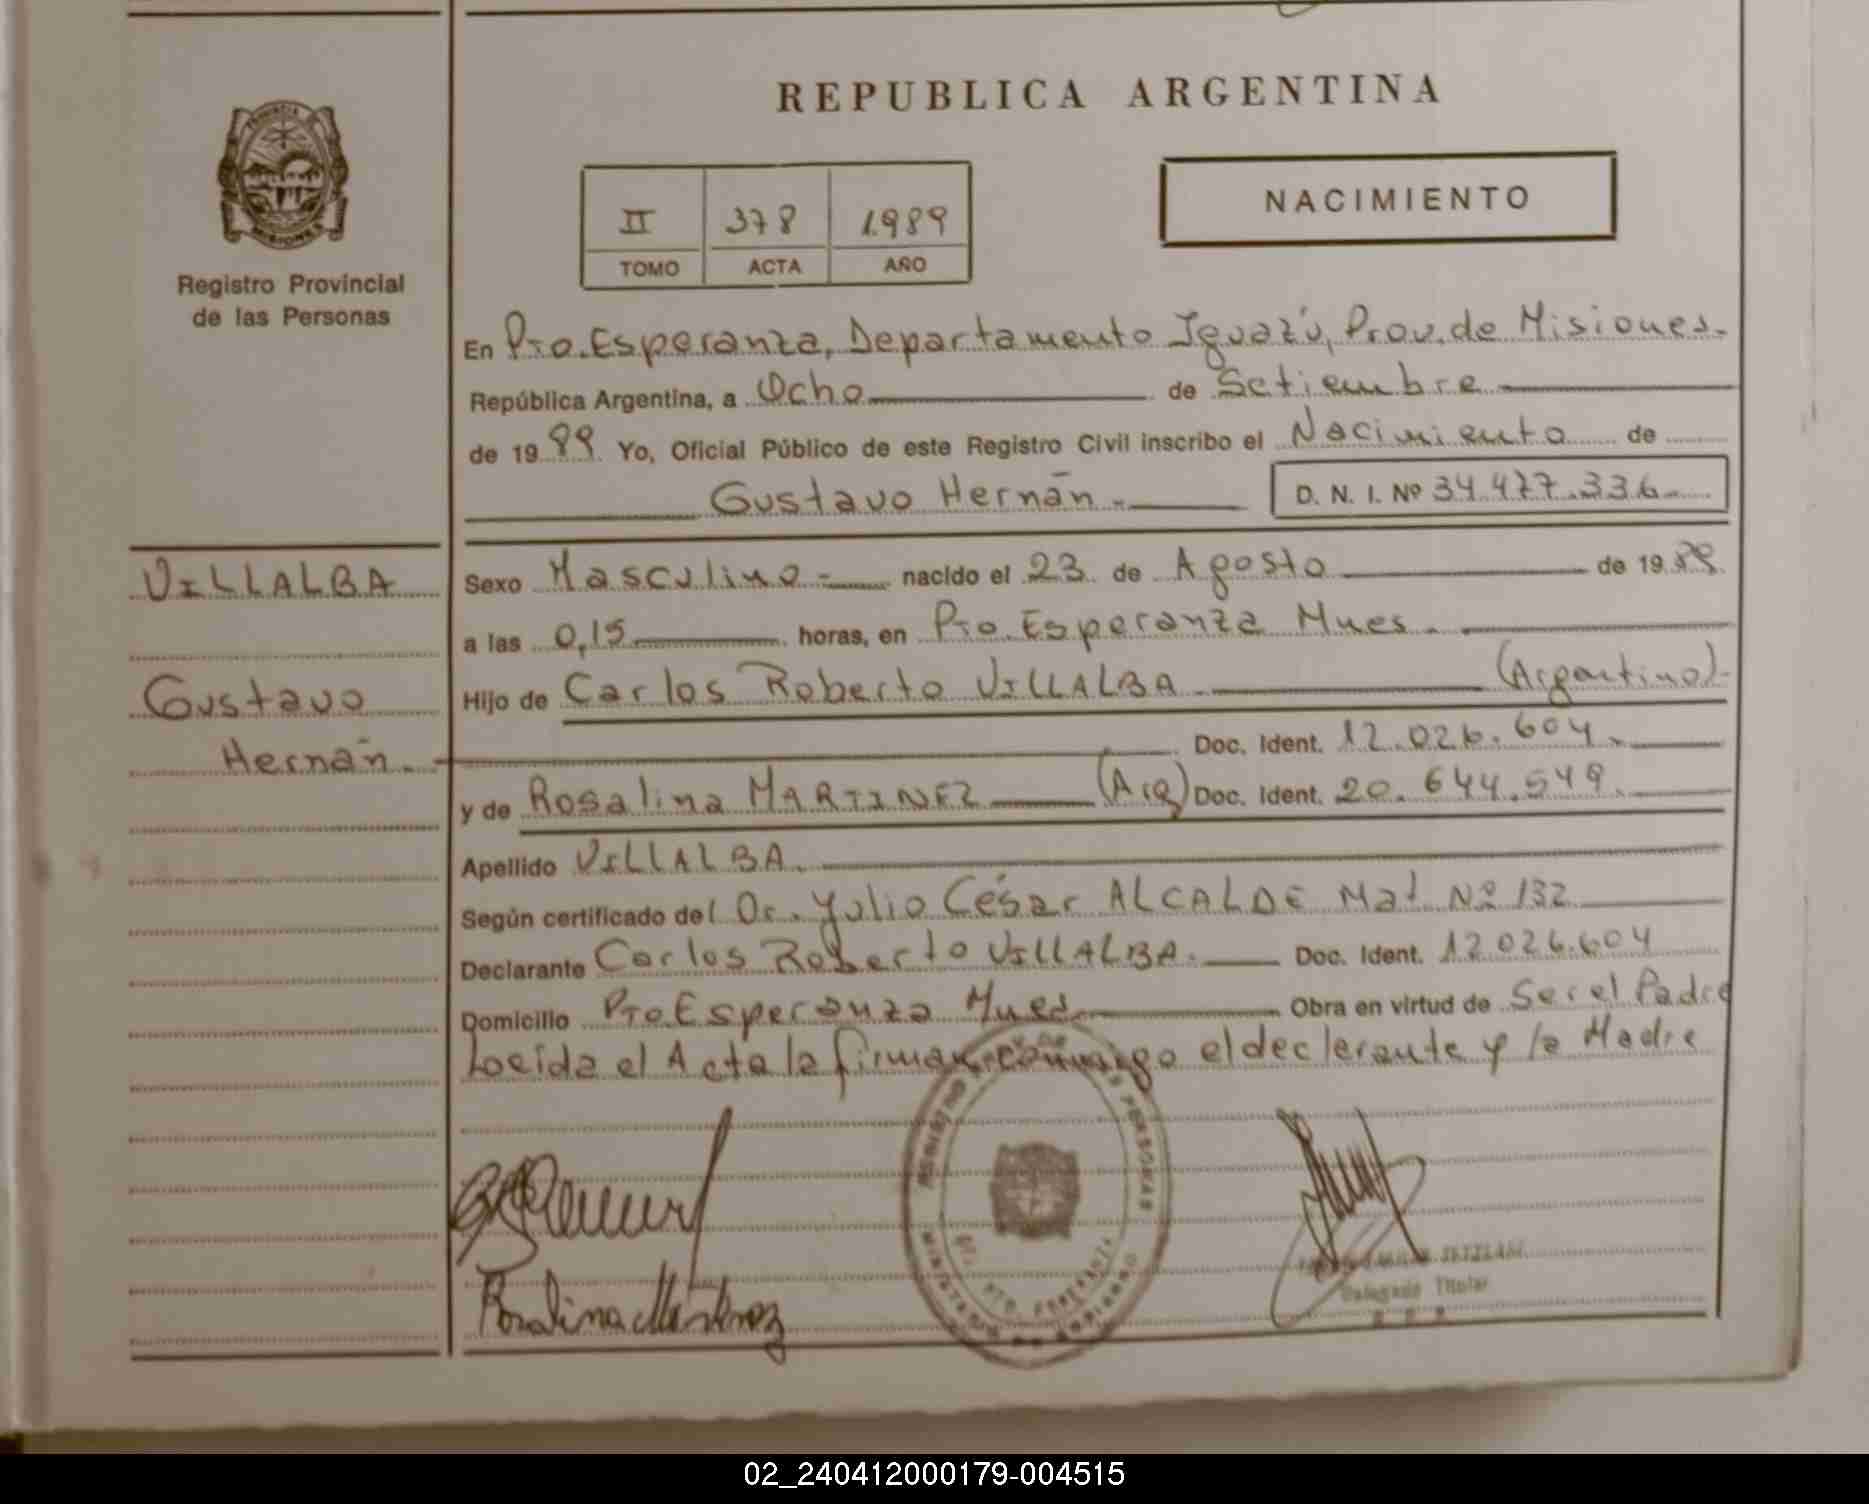 REPUBLICA ARGENTINA
PROVINCIA
MISIONES
Registro Provincial
de las Personas
II 378 1989
TOMO ACTA AÑO
NACIMIENTO
En Pto. Esperanza, Departamento Iguazú, Prov. de Misiones.
República Argentina, a Ocho de Setiembre
de 1989 Yo, Oficial Público de este Registro Civil inscribo el Nacimiento de
Gustavo Hernán.- D. N. I. Nº 34.477.336
VILLALBA
Gustavo
Hernán.
Sexo Masculino nacido el 23 de Agosto de 1989
a las 0,15 horas, en Pto. Esperanza Mnes.
Hijo de Carlos Roberto VILLALBA (Argentino)
Doc. Ident. 12.026.604.
y de Rosalina MARTINEZ (Arg) Doc. Ident. 20.644.549.
Apellido VILLALBA.
Según certificado del Dr. Yulio César ALCALDE Mat Nº 132
Declarante Carlos Roberto VILLALBA. Doc. Ident. 12.026.604
Domicilio Pto. Esperanza Mnes. Obra en virtud de Ser el Padre
Loeida el Acta la firman conmigo el declerante y la Madre
Rosalina Martinez
Delegado Titular
02_240412000179-004515